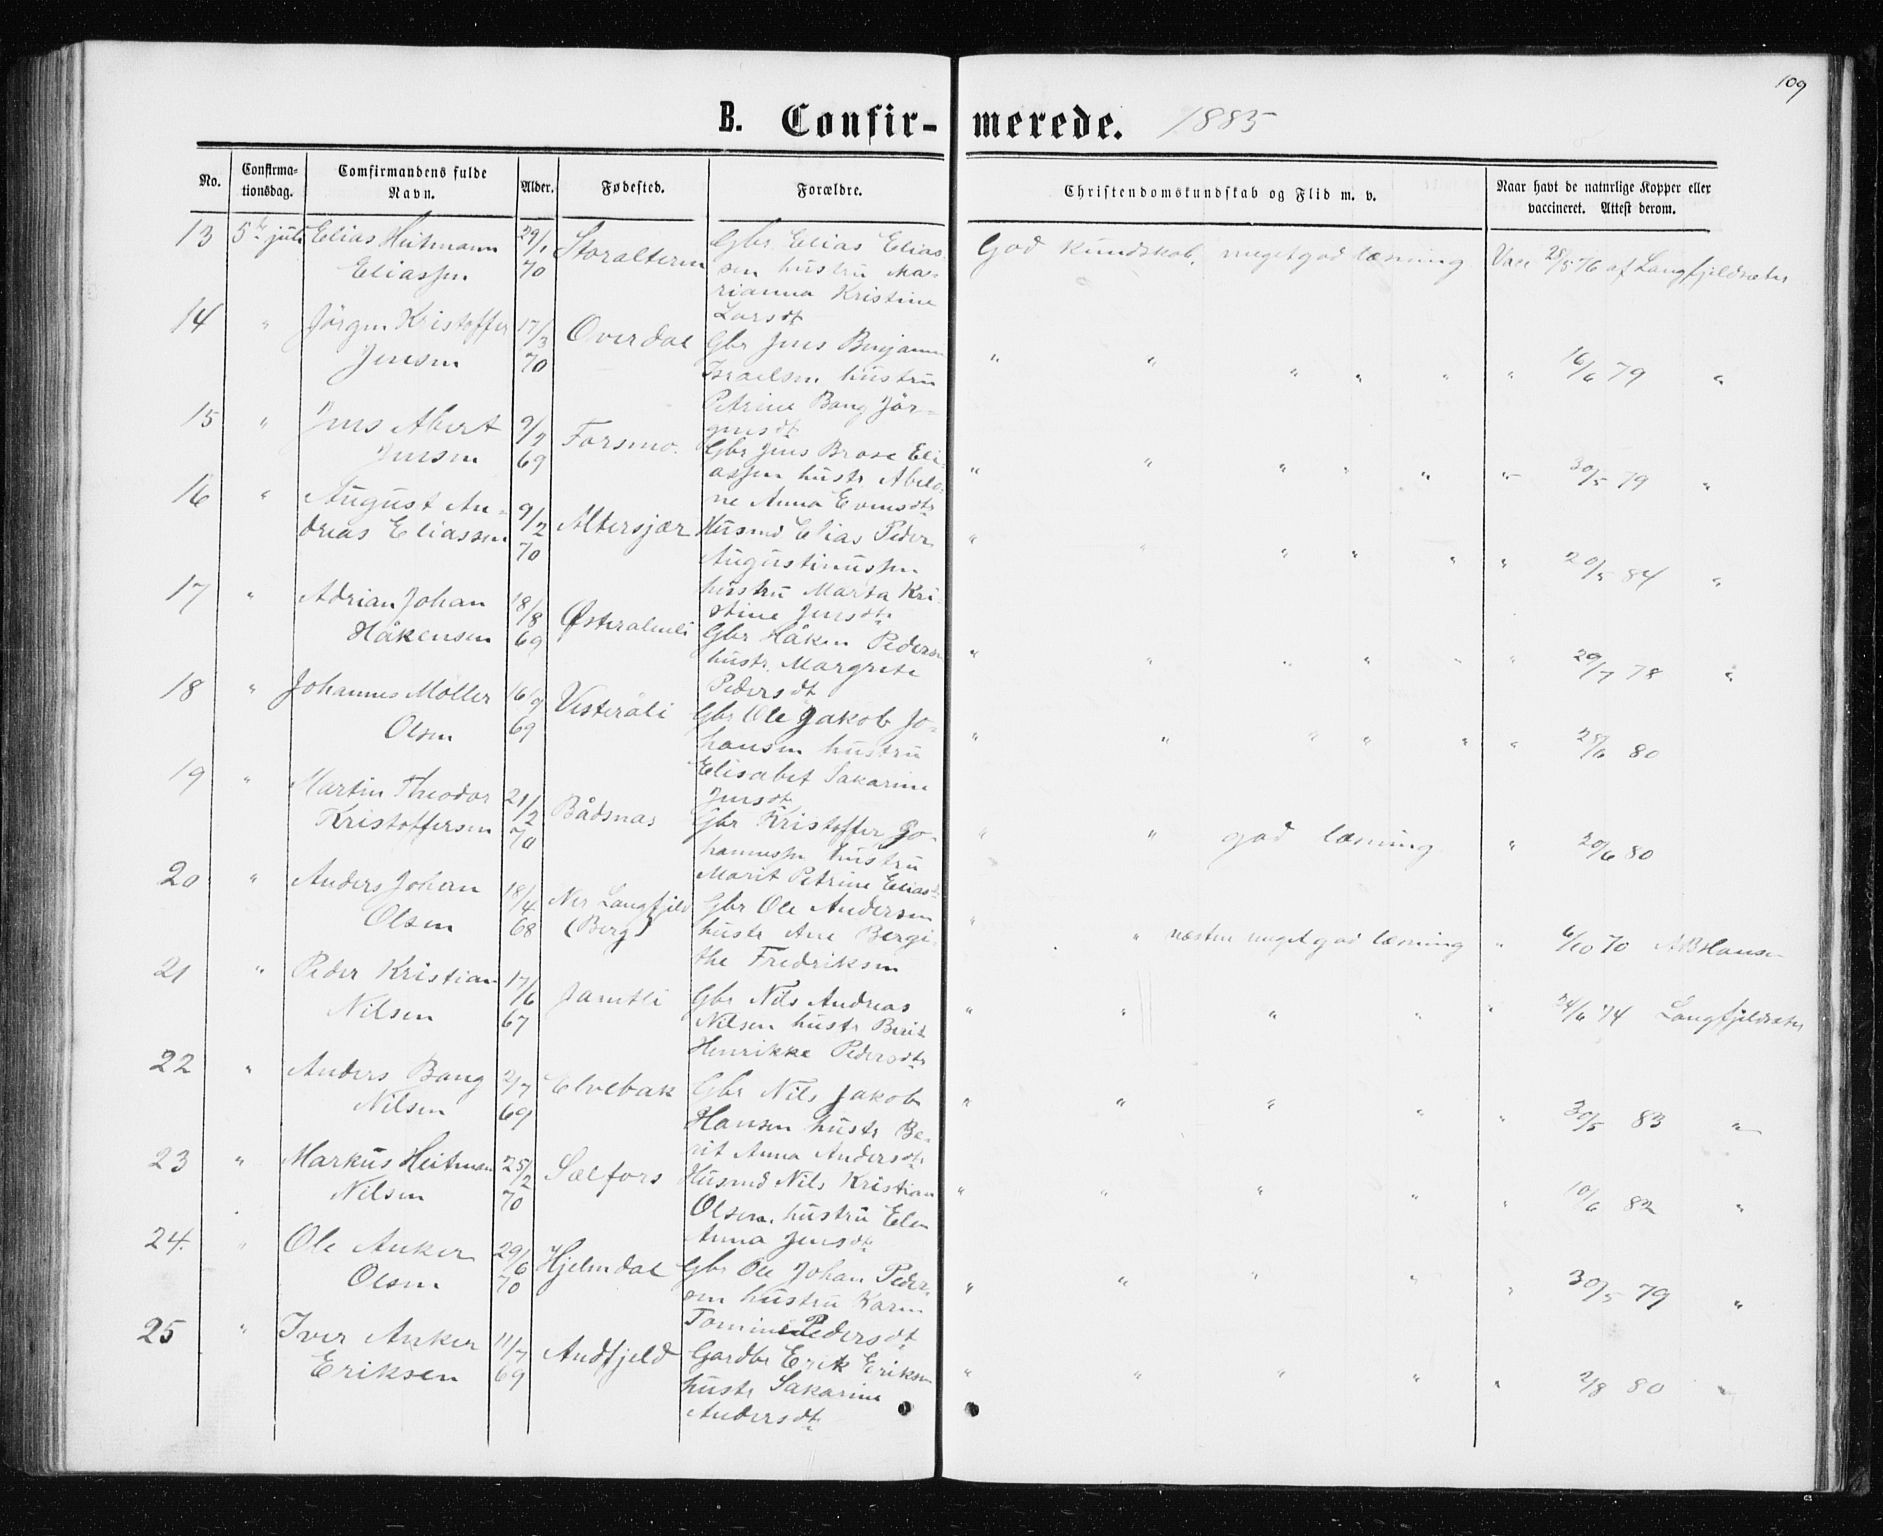 109
B. Confirmerede. 1885
No. Confirmationsdag. Comfirmandens fulde Navn. Alder. Fødested. Forældre. Christendomskundskab og Flid m. v. Naar havt de naturlige Kopper eller vaccineret. Attest derom.
13 5te juli Elias Heitmann 29/1 Storalteren Gbr Elias Elias- God kundskab. meget god læsning Vac 28/5 76 af Langfjeldsæter
Eliassen 70 sen hustru Ma-
rianna Kristine
Larsdt
14 " Jörgen Kristoffer 17/3 Overdal Gbr Jens Benjamin " " " " " " 16/6 79 "
Jensen 70 Israelsen hustru
Petrine Bang Jör-
gensdt
15 " Jens Abert 9/2 Forsmo. Gbr Jens Brose Eli- " " " " " " 30/5 79 "
Jensen 69 assen hustr Abelo-
ne Anna Evensdtr
16 " August An- 9/2 Altersjær Husmd Elias Peder " " " " " " 20/5 84 "
dreas Eliassen 70 Augustinussen
hustru Marta Kri-
stine Jensdtr
17 " Adrian Johan 18/8 Østeralmli Gbr Håken Pedersen " " " " " " 29/7 78 "
Håkensen 69 hustr. Margrete
Pedersdt
18 " Johannes Möller 16/9 Vesteråli Gbr Ole Jakob Jo- " " " " " " 28/6 80
Olsen 69 hansen hustru
Elisabet Sakarine
Jensdt
19 " Martin Theodor 21/2 Bådsnæs Gbr Kristoffer Jo- " " god læsning " 20/6 80
Kristoffersen 70 hannessen hustru
Marit Petrine Eliasdt
20 " Anders Johan 18/4 Ner Langfjeld Gbr Ole Andersen " " næsten meget god læsning " 6/10 70 A B Hansen
Olsen 68 (Berg) hustr Ane Bergi-
the Fredriksen
21 " Peder Kristian 17/6 Jamtli Gbr Nils Andreas " " " " " 24/6 74 Langfjeldsæter
Nilsen 67 Nilsen hustr Berit
Henrikke Pedersdtr
22 " Anders Bang 2/7 Elvebak Gbr Nils Jakob " " " " " 30/5 83 "
Nilsen 69 Hansen hustr Be-
rit Anna Andersdtr
23 " Markus Heitman 25/2 Sælfors Husmd Nils Kristian " " " " " 10/6 82 "
Nilsen 70 Olsen. hustru Elen
Anna Jensdt
24. " Ole Anker 29/6 Hjelmdal Gbr Ole Johan Peder- " " " " " 30/5 79 "
Olsen 70 sen hustru Karen
Tomine Pedersdt
25 " Iver Anker 11/7 Andfjeld Gardbr Erik Eriksen " " " " " 2/8 80 "
Eriksen 69 hustr Sakarine
Andersdtr